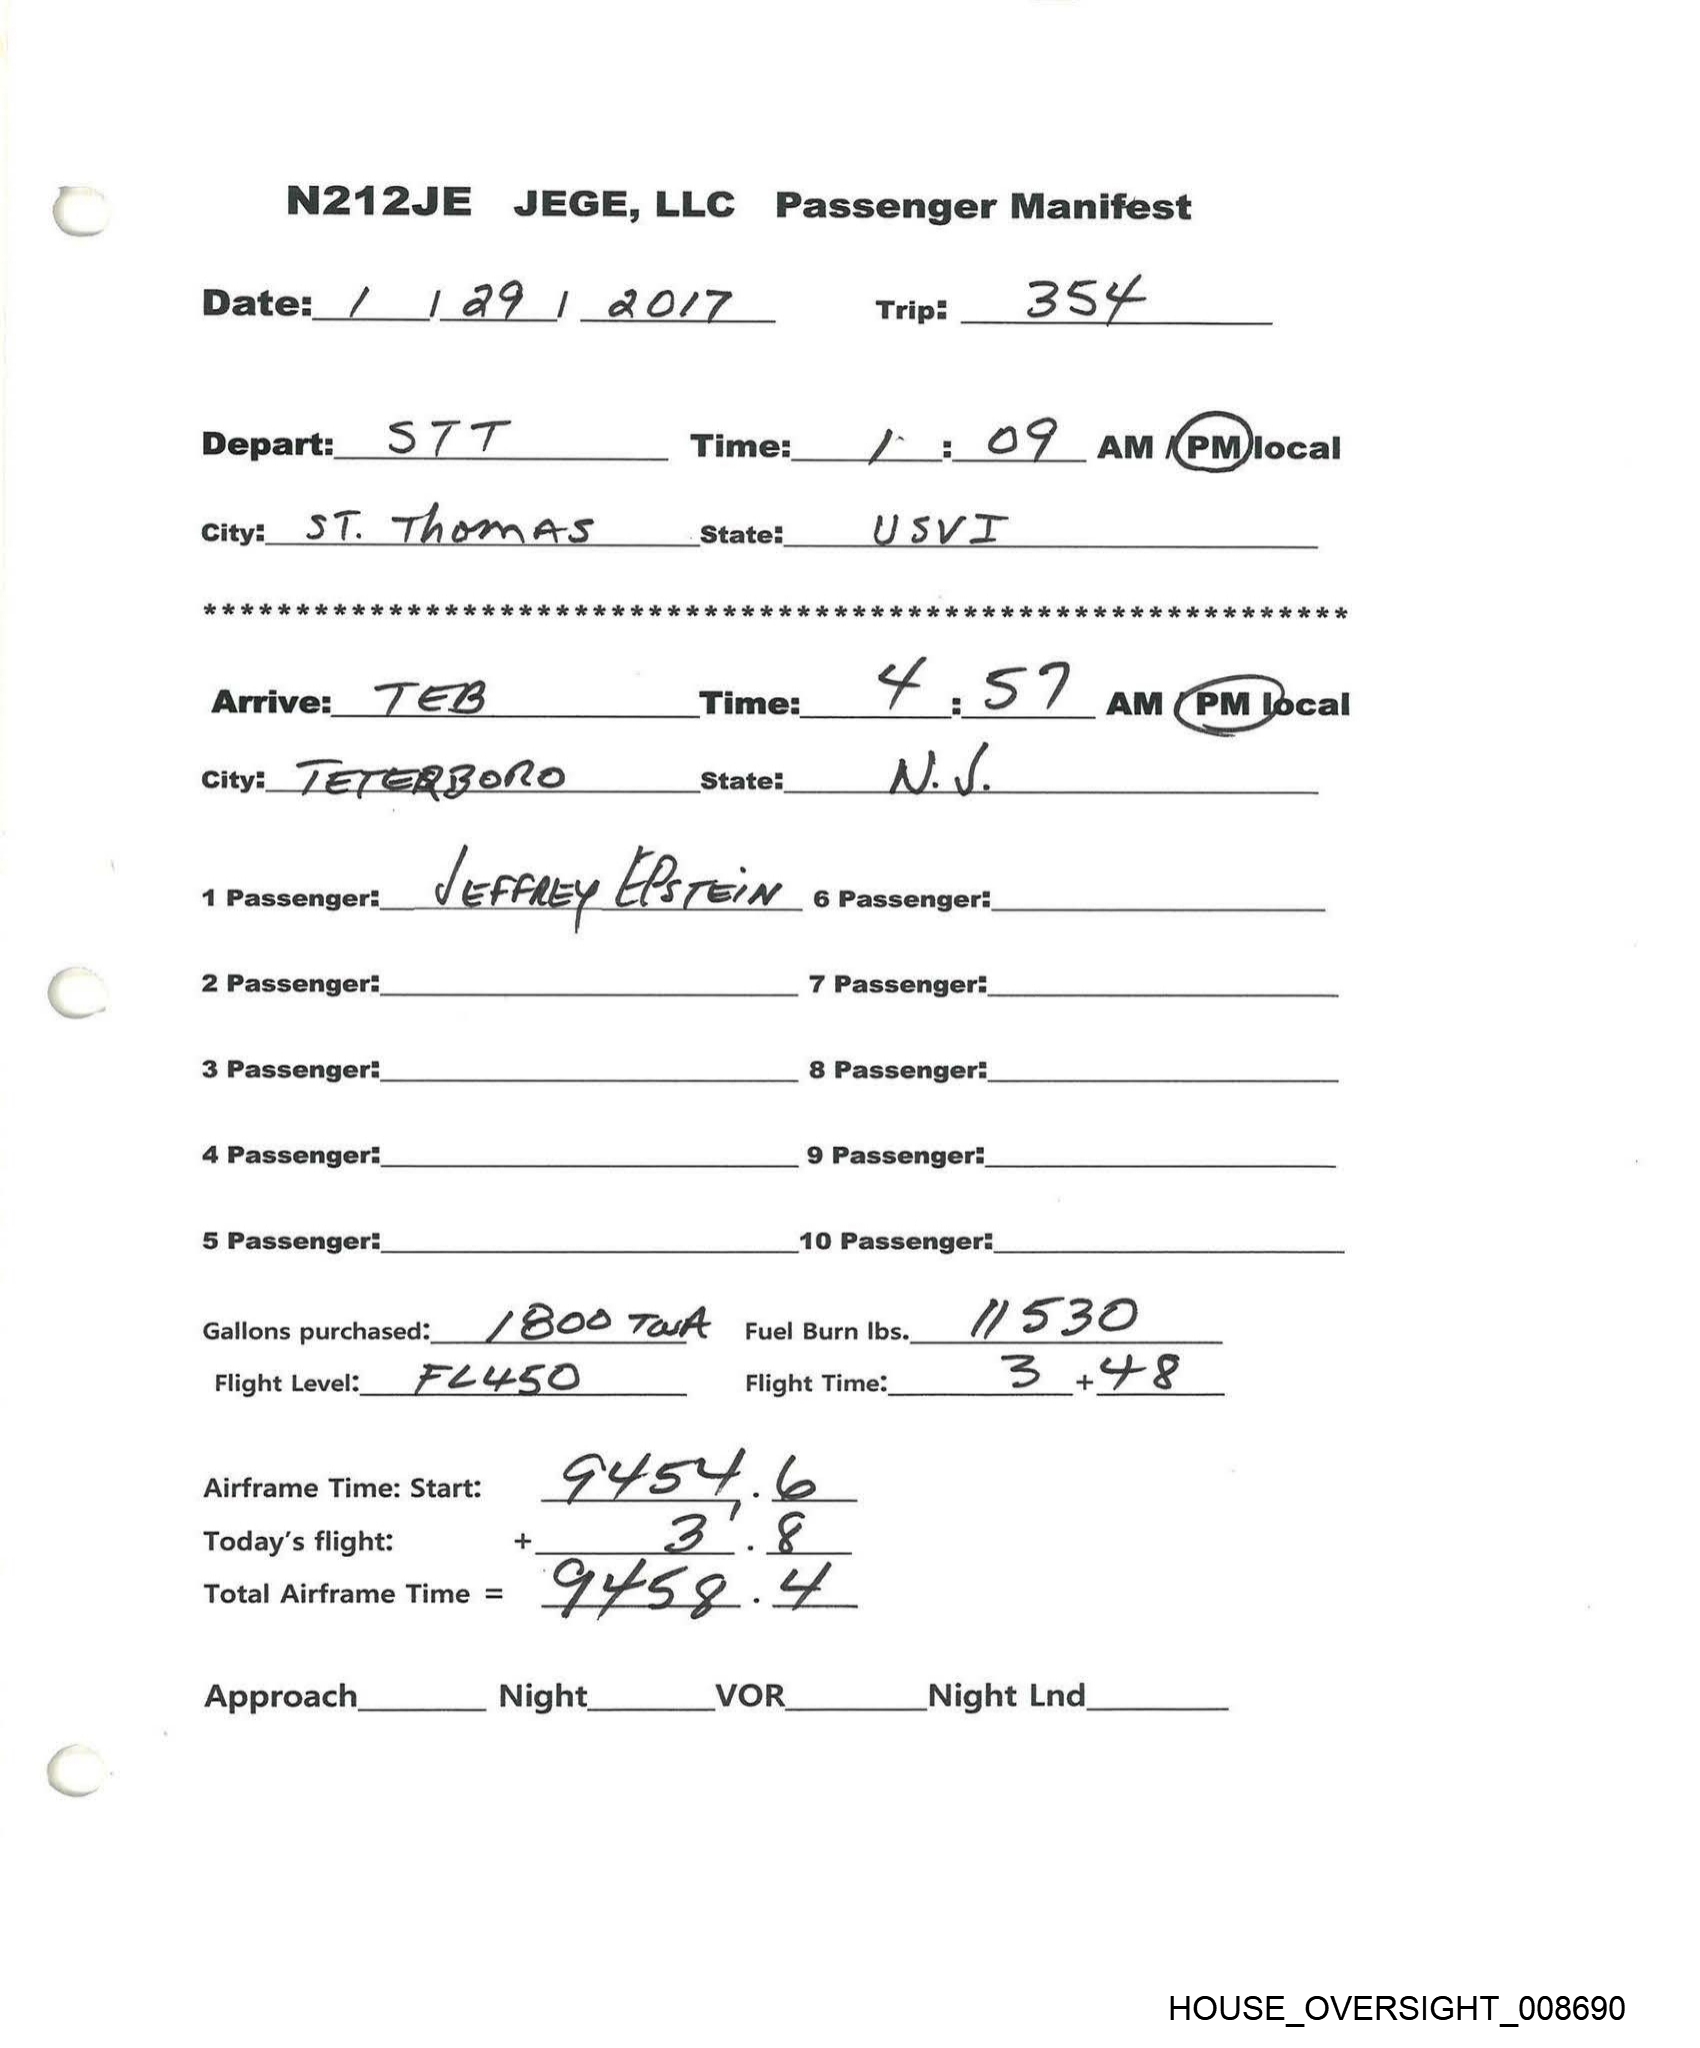 N212JE JEGE, LLC Passenger Manifest
Date: 1 / 29 / 2017 Trip: 354
Depart: STT Time: 1 : 09 AM / PM local
City: ST. Thomas State: USVI
***************************************************************
Arrive: TEB Time: 4 : 57 AM / PM local
City: TETERBORO State: N.J.
1 Passenger: JEFFREY EPSTEIN 6 Passenger:
2 Passenger: 7 Passenger:
3 Passenger: 8 Passenger:
4 Passenger: 9 Passenger:
5 Passenger: 10 Passenger:
Gallons purchased: 1800 Fuel Burn lbs. 11530
Flight Level: FL450 Flight Time: 3 + 48
Airframe Time: Start: 9454 . 6
Today's flight: + 3 . 8
Total Airframe Time = 9458 . 4
Approach Night VOR Night Lnd
HOUSE_OVERSIGHT_008690